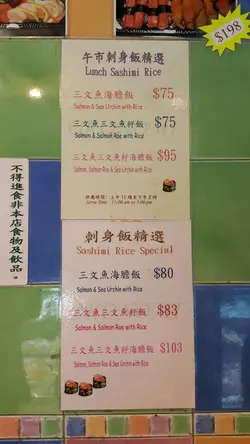 $198
午市刺身飯精選
Lunch Sashimi Rice
三文魚海膽飯 $75
Salmon & Sea Urchin with Rice
三文魚三文魚籽飯 $75
Salmon & Salmon Roe with Rice
三文魚三文魚籽海膽飯 $95
Salmon, Salmon Roe & Sea Urchin with Rice
供應時間：上午11時至下午3時
Serve Time : 11:00 am to 3:00 pm
不得進食非本店食物及飲品。
刺身飯精選
Sashimi Rice Special
三文魚海膽飯 $80
Salmon & Sea Urchin with Rice
三文魚三文魚籽飯 $83
Salmon & Salmon Roe with Rice
三文魚三文魚籽海膽飯 $103
Salmon, Salmon Roe & Sea Urchin with Rice